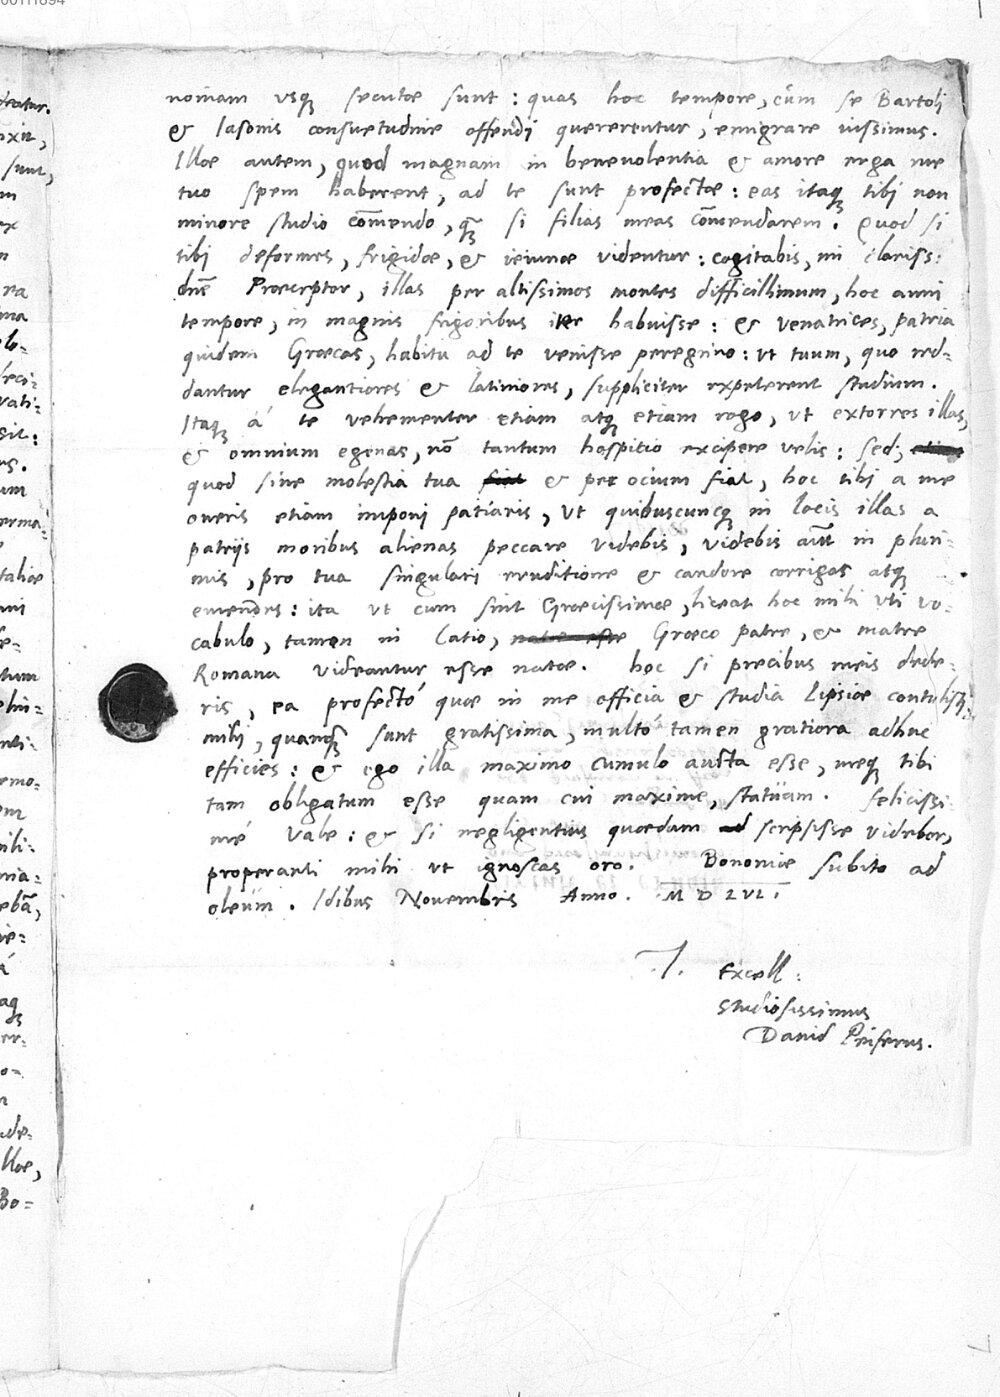 noniam usq secutae sunt: quas hoc tempore, cùm se Bartoli
& Iasonis consuetudine offendi quererentur, emigrare iussimus.
Illae autem, quod magnam in benevolentia & amore erga me
tuo spem haberent, ad te sunt profectae: eas itaq tibi non
minore studio com̄endo, q̃ si filias meas com̄endarem. Quod si
tibi deformes, frigidae, & ieiunae videntur: cogitabis, mi clariss:
dn̄e Praeceptor, illas per altissimos montes difficillimum, hoc anni
tempore, in magnis frigoribus iter habuisse: & venatrices, patria
quidem Graecas, habitu ad te venisse peregrino: ut tuum, quo red-
dantur elegantiores & latiniores, suppliciter expeterent studium.
Itaq á te vehementer etiam atq etiam rogo, ut extorres illas,
& omnium egenas, nō tantum hospitio excipere velis: sed,
quod sine molestia tua fiat & per ocium fiat, hoc tibi a me
oneris etiam imponi patiaris, ut quibuscunq in locis illas a
patrijs moribus alienas peccare videbis, videbis aūt in pluri-
mis, pro tua singulari eruditione & candore corrigas atq
emendes: ita ut cum sint Graecissimae, liceat hoc mihi uti vo-
cabulo, tamen in Latio, natae esse Graeco patre, & matre
Romana videantur esse natae. hoc si precibus meis dede-
ris, ea profectò quae in me officia & studia Lipsiae contulisti
mihi, quanq̃ sunt gratissima, multò tamen gratiora adhuc
efficies: & ego illa maximo cumulo aucta esse, meq tibi
tam obligatum esse quam cui maxime, statuam. Felicissi-
mè Vale: & si negligentius quaedam scripsisse videbor,
properanti mihi ut ignoscas oro. Bononiae subito ad
oleum. Idibus Novembris Anno. M D LVI
T. Excell:
studiosissimus
David Peiferus.